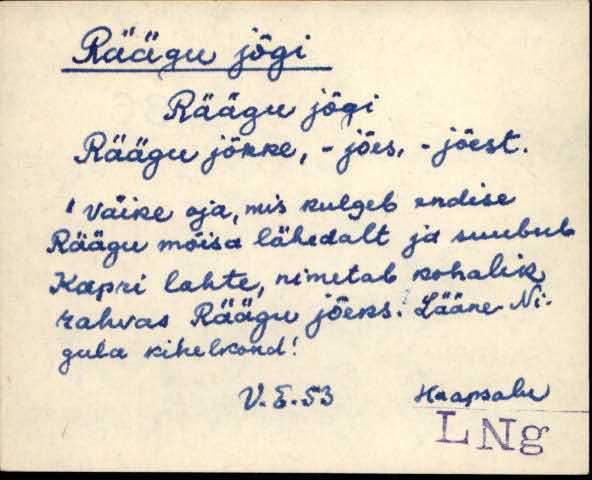 Räägu jõgi
Räägu jõgi
Räägu jõkke, - jões, - jõest.
" Väike oja, mis kulgeb endise
Räägu mõisa lähedalt ja suubub
Kapri lahte, nimetab kohalik
rahvas Räägu jõeks. Lääne-Ni-
gula kihelkond.
V. E. 53 Haapsalu
LNg